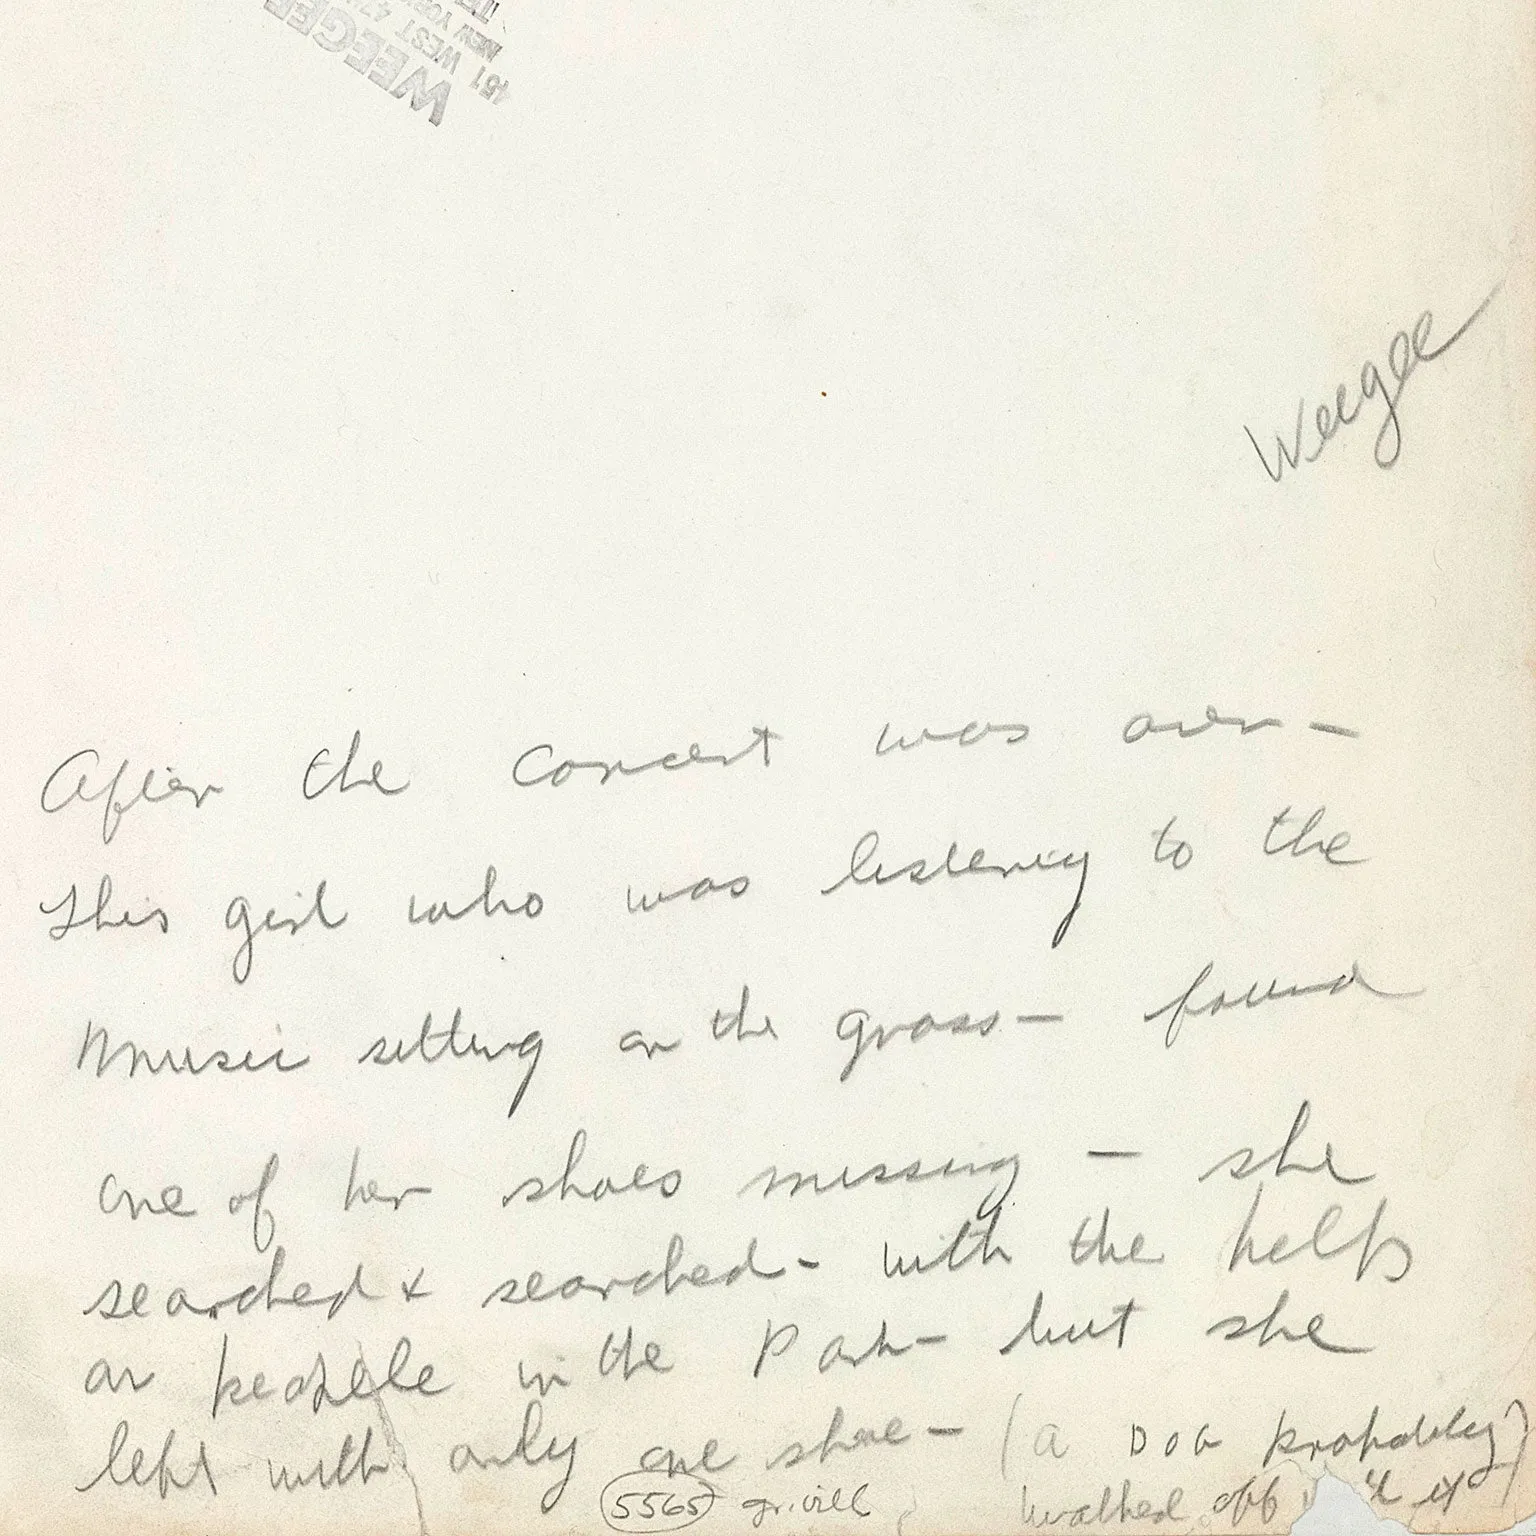 WEEGEE
451 WEST 47
NEW YOR
Weegee
After the concert was over —
This girl who was listening to the
Music sitting on the grass — found
one of her shoes missing — she
searched & searched - with the help
or people in the Park - but she
left with only one shoe — (a Dog probably)
5565 walked off it